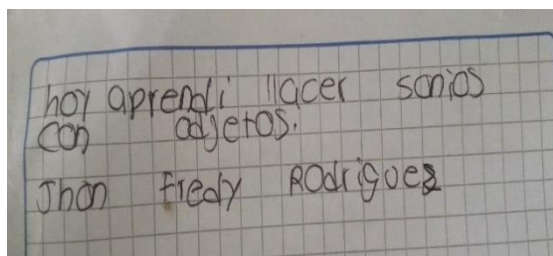 hoy aprendi llacer sonios
con adjetos.
Jhon fredy Rodriguez